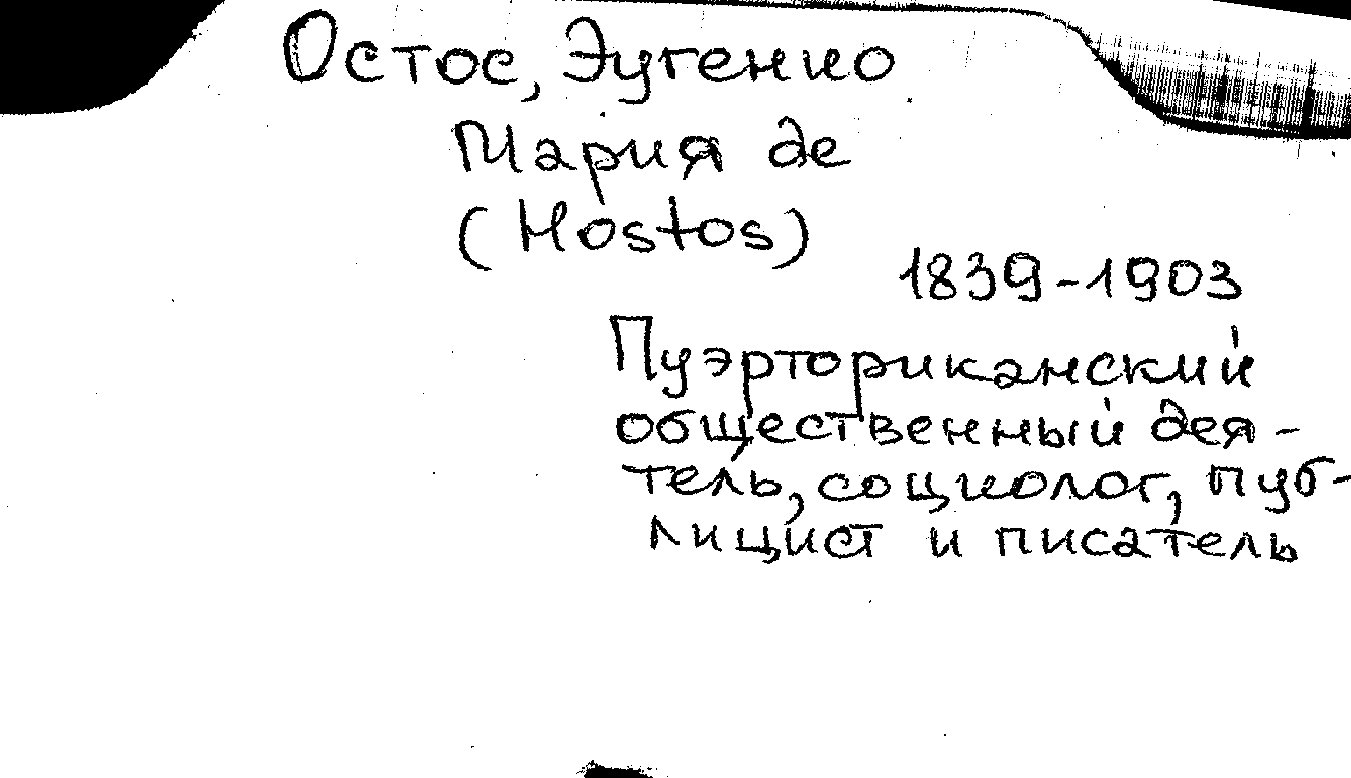 Остос, Эугенио
Мария де
(Hostos)
1839-1903
Пуэрториканский
общественный дея-
тель, социолог, пуб-
лицист и писатель